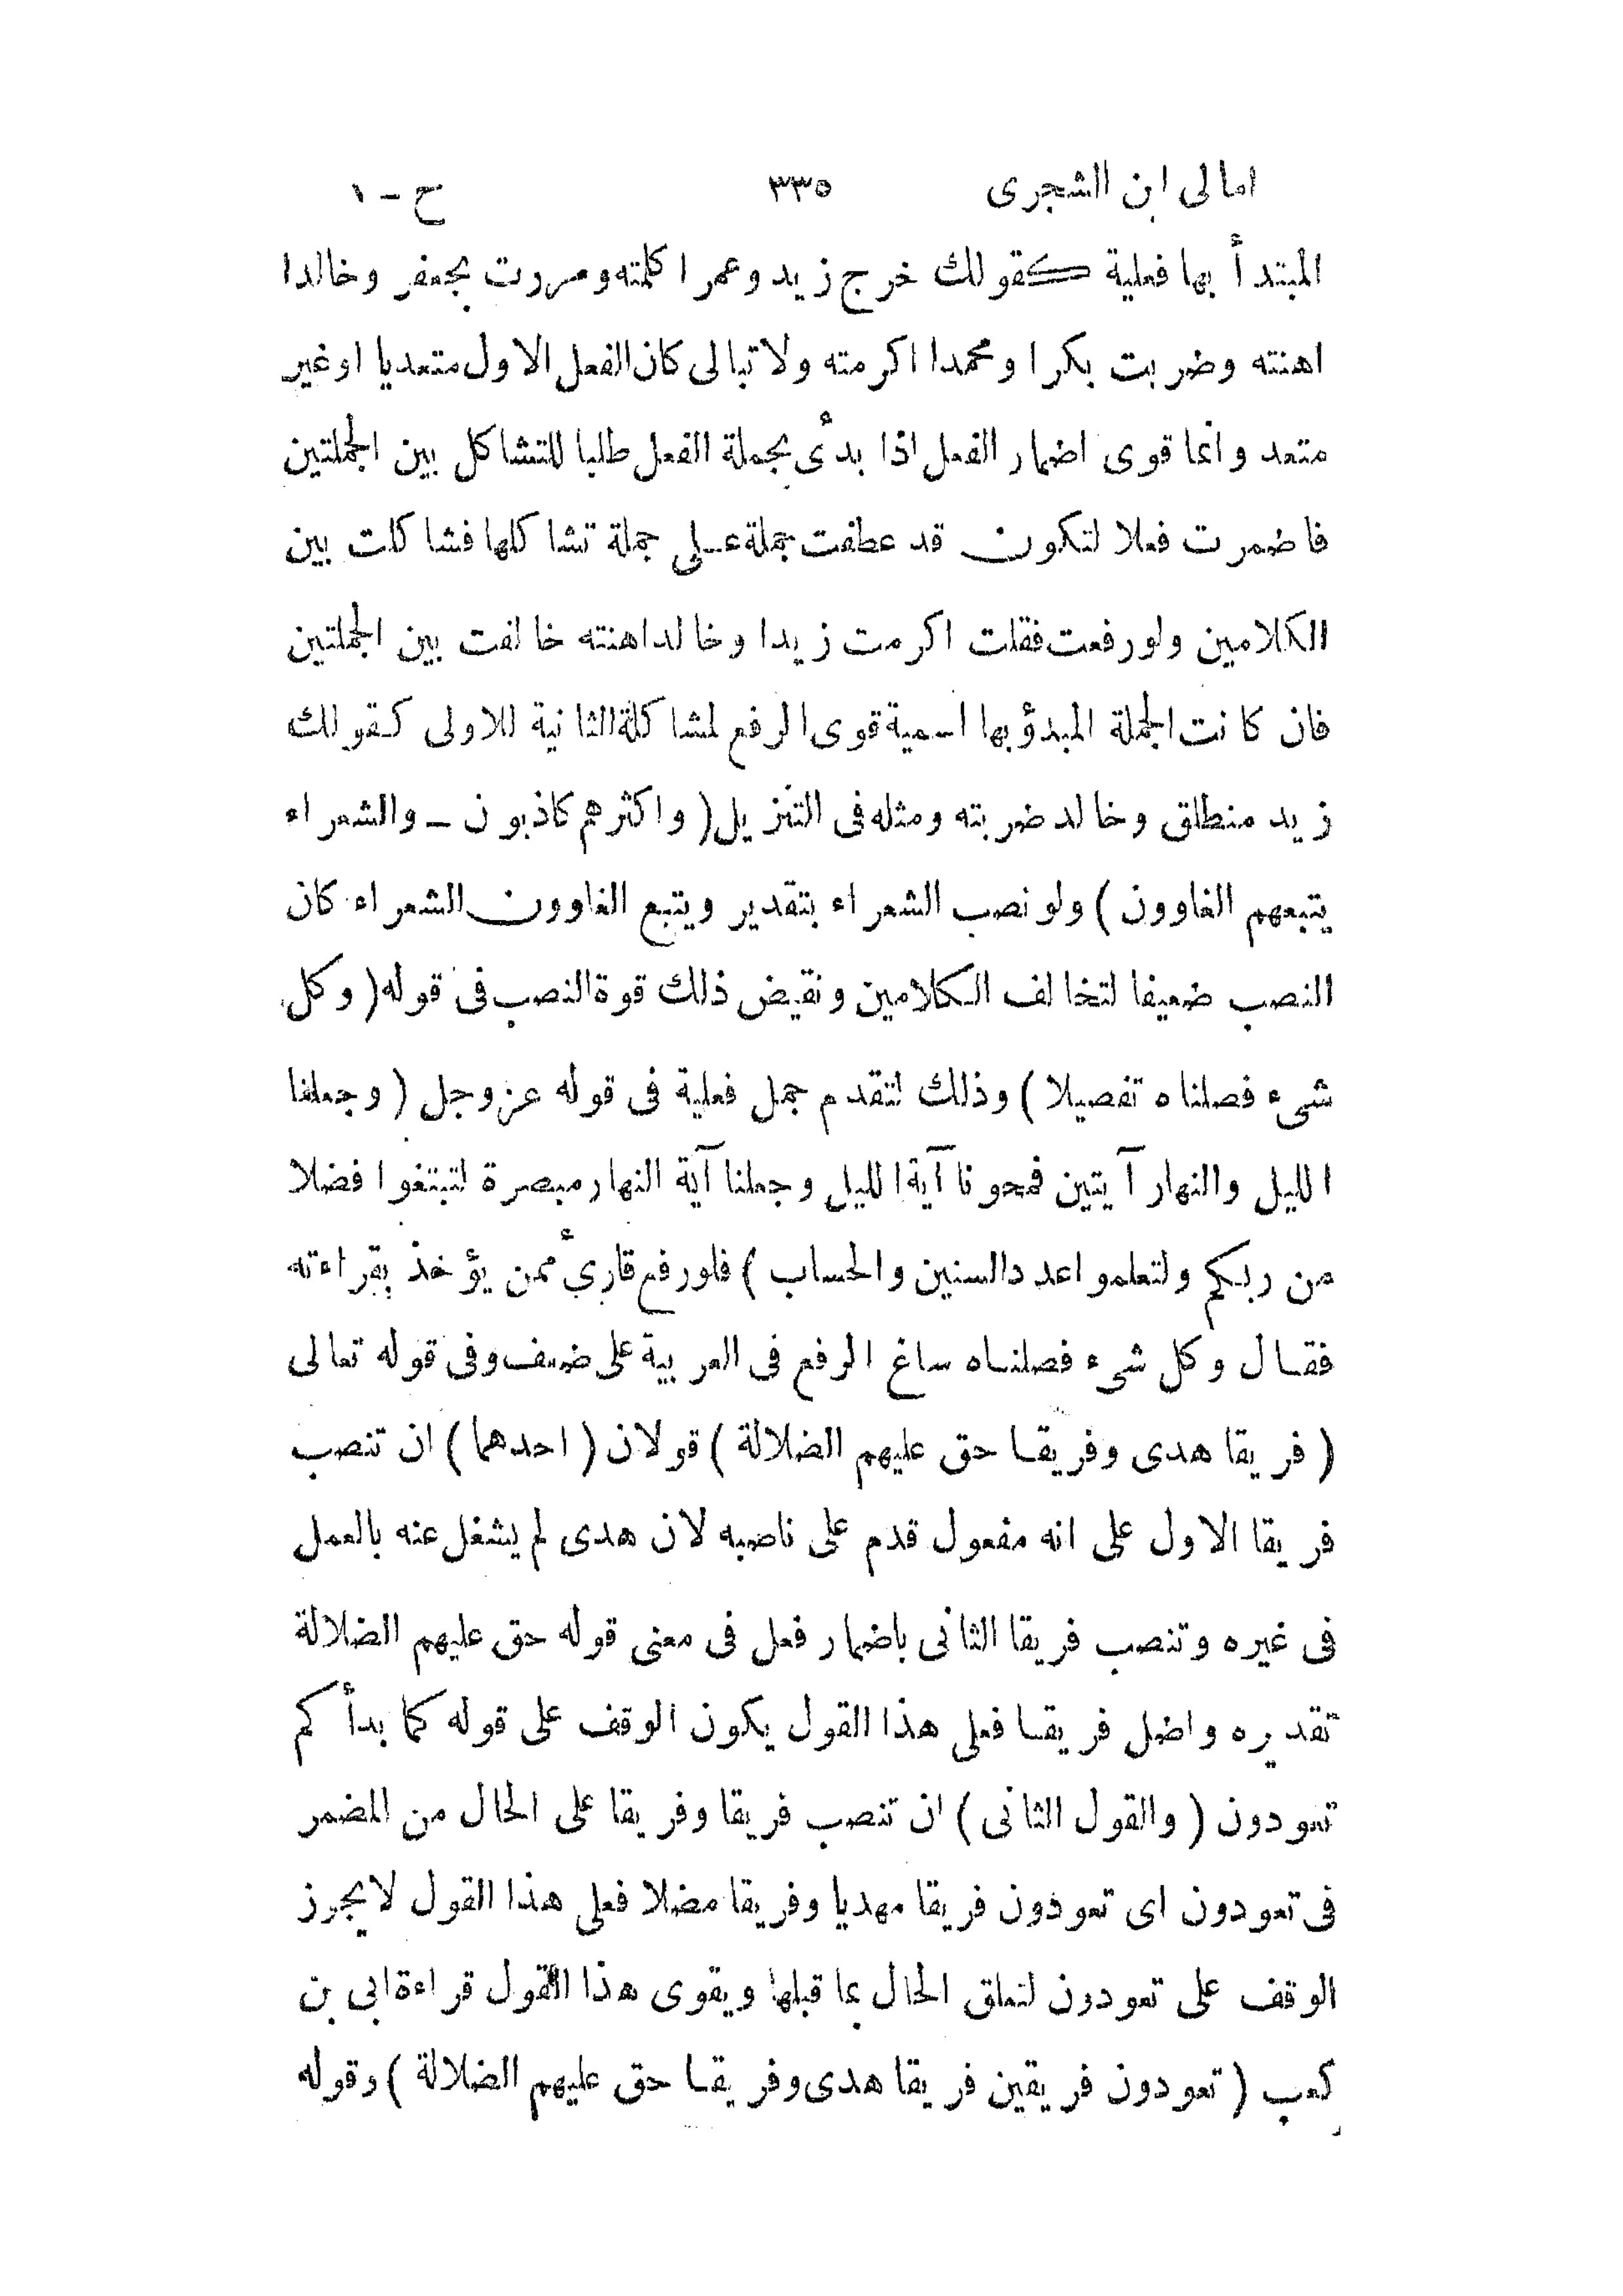 امالى ابن الشجرى ٣٣٥ ح - ١
المبتدأ بها فعلية كقولك خرج زيد وعمرا كلمته ومررت بجعفر وخالدا
اهنته وضربت بكرا ومحمدا اكرمته ولا تبالى كان الفعل الاول متعديا او غير
متعد وانما قوى اضمار الفعل اذا بدئ بجملة الفعل طلبا للتشاكل بين الجملتين
فاضمرت فعلا لتكون قد عطفت جملة على جملة تشاكلها فشاكلت بين
الكلامين ولو رفعت فقلت اكرمت زيدا وخالد اهنته خالفت بين الجملتين
فان كانت الجملة المبدؤ بها اسمية قوى الرفع لمشاكلة الثانية للاولى كقولك
زيد منطلق وخالد ضربته ومثله فى التنزيل ( واكثرهم كاذبون ـ والشعراء
يتبعهم الغاوون ) ولو نصب الشعراء بتقدير ويتبع الغاوون الشعراء كان
النصب ضعيفا لتخالف الكلامين ونقيض ذلك قوة النصب فى قوله ( وكل
شىء فصلناه تفصيلا ) وذلك لتقدم جمل فعلية فى قوله عز وجل ( وجعلنا
الليل والنهار آيتين فمحونا آية الليل وجعلنا آية النهار مبصرة لتبتغوا فضلا
من ربكم ولتعلموا عدد السنين والحساب ) فلو رفع قارئ ممن يؤخذ بقراءته
فقال وكل شىء فصلناه ساغ الرفع فى العربية على ضعف وفى قوله تعالى
( فريقا هدى وفريقا حق عليهم الضلالة ) قولان ( احدهما ) ان تنصب
فريقا الاول على انه مفعول قدم على ناصبه لان هدى لم يشغل عنه بالعمل
فى غيره وتنصب فريقا الثانى باضمار فعل فى معنى قوله حق عليهم الضلالة
تقديره واضل فريقا فعلى هذا القول يكون الوقف على قوله كما بدأكم
تعودون ( والقول الثانى ) ان تنصب فريقا وفريقا على الحال من المضمر
فى تعودون اى تعودون فريقا مهديا وفريقا مضلا فعلى هذا القول لا يجوز
الوقف على تعودون لتعلق الحال بما قبلها ويقوى هذا القول قراءة ابى بن
كعب ( تعودون فريقين فريقا هدى وفريقا حق عليهم الضلالة ) وقوله